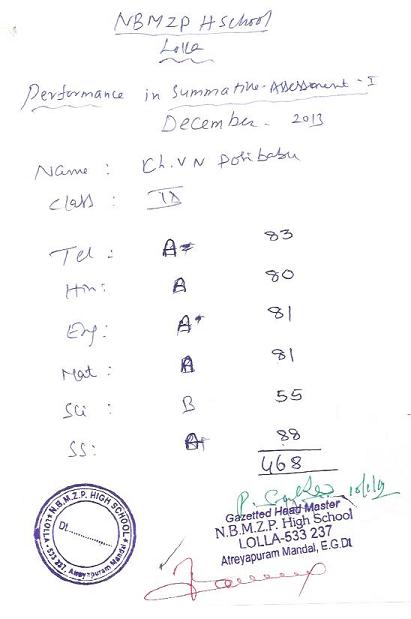 NBMZP H School
Lolla
Performance in Summative Assessment - I
December - 2013
Name : Ch. V N Posibabu
Class : IX
Tel : A+ 83
Hin : A 80
Eng : A+ 81
Mat : A 81
Sci : B 55
SS : A+ 88
468
Gazetted Head Master
N.B.M.Z.P. High School
LOLLA-533 237
Atreyapuram Mandal, E.G.Dt
N.B.M.Z.P. HIGH SCHOOL
Dt.
LOLLA - 533 237, Atreyapuram Mandal